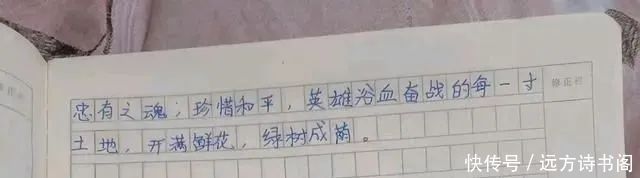 忠有之魂；珍惜和平，英雄浴血奋战的每一寸
土地，开满鲜花，绿树成荫。
修正栏
快传号／远方诗书阁